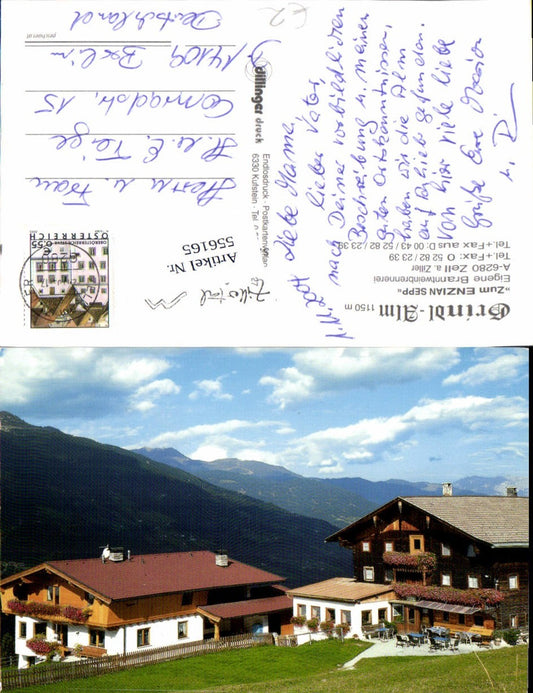 Grindl-Alm 1150 m
»Zum ENZIAN SEPP«
Eigene Branntweinbrennerei
A-6280 Zell a. Ziller
Tel.+Fax: Ö: 0 52 82 / 23 39
Tel.+Fax aus D: 00 43 / 52 82 / 23 39
Liebe Mama,
Lieber Vater,
nach Deiner vorbildlichen
Beschreibung u. meiner
guten Ortskenntnissen,
haben wir die Alm
auf Anhieb gefunden.
Von hier viele liebe
Grüße Eure Marion
u.
dillinger druck
Endlosdruck · Postkarten
6330 Kufstein · Tel.
Artikel Nr.
556165
ÖSTERREICH
0,55
Herrn u. Frau
H. u. E.
Conradstr. 15
D-14109 Berlin
Deutschland
€2